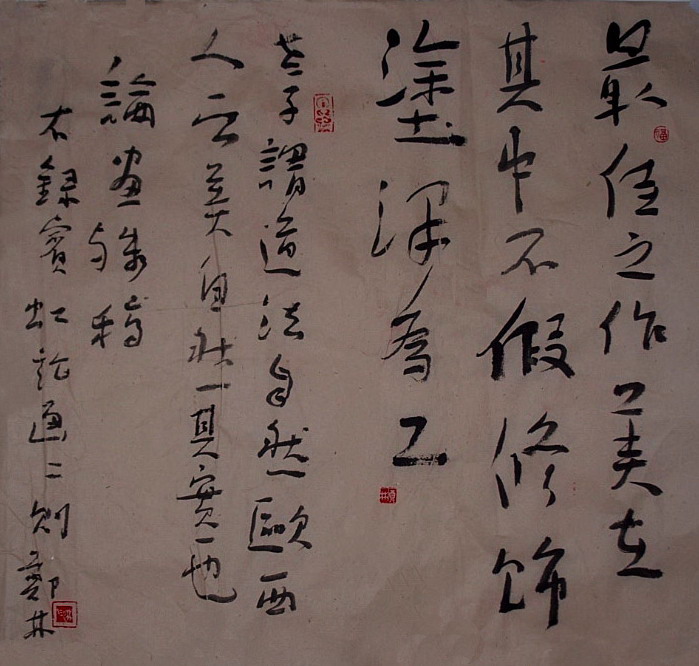 最佳之作工美在
其中不假修飾
塗澤為工
老子謂道法自然歐西
人云美自然其實一也
論畫殘稿
右錄賓虹二則鄭林